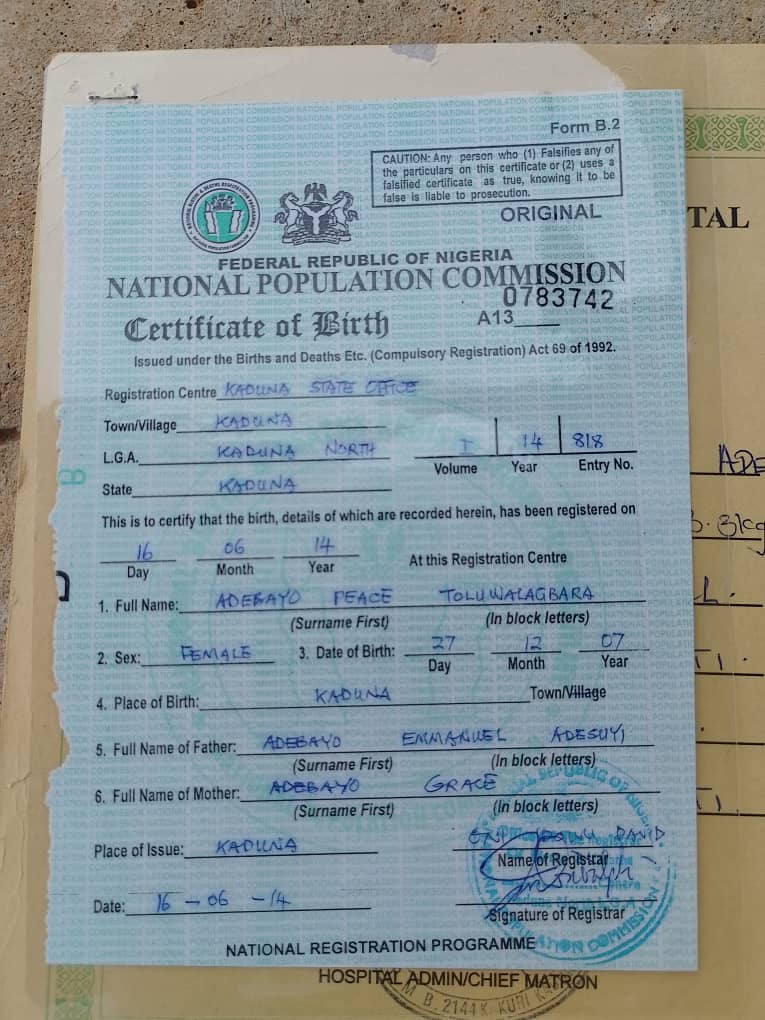 Form B.2
CAUTION: Any person who (1) Falsifies any of
the particulars on this certificate or (2) uses a
falsified certificate as true, knowing it to be
false is liable to prosecution.
ORIGINAL
FEDERAL REPUBLIC OF NIGERIA
NATIONAL POPULATION COMMISSION
0783742
Certificate of Birth A13
Issued under the Births and Deaths Etc. (Compulsory Registration) Act 69 of 1992.
Registration Centre KADUNA STATE OFFICE
Town/Village KADUNA
L.G.A. KADUNA NORTH I 14 818
Volume Year Entry No.
State KADUNA
This is to certify that the birth, details of which are recorded herein, has been registered on
16 06 14
Day Month Year At this Registration Centre
1. Full Name: ADEBAYO PEACE TOLUWALAGBARA
(Surname First) (In block letters)
2. Sex: FEMALE 3. Date of Birth: 27 12 07
Day Month Year
4. Place of Birth: KADUNA Town/Village
5. Full Name of Father: ADEBAYO EMMANUEL ADESUYI
(Surname First) (In block letters)
6. Full Name of Mother: ADEBAYO GRACE
(Surname First) (In block letters)
Place of Issue: KADUNA DAVID
Name of Registrar
Date: 16 - 06 - 14
Signature of Registrar
NATIONAL REGISTRATION PROGRAMME
HOSPITAL ADMIN/CHIEF MATRON
M B. 2144 KAKURI
TAL
ADE